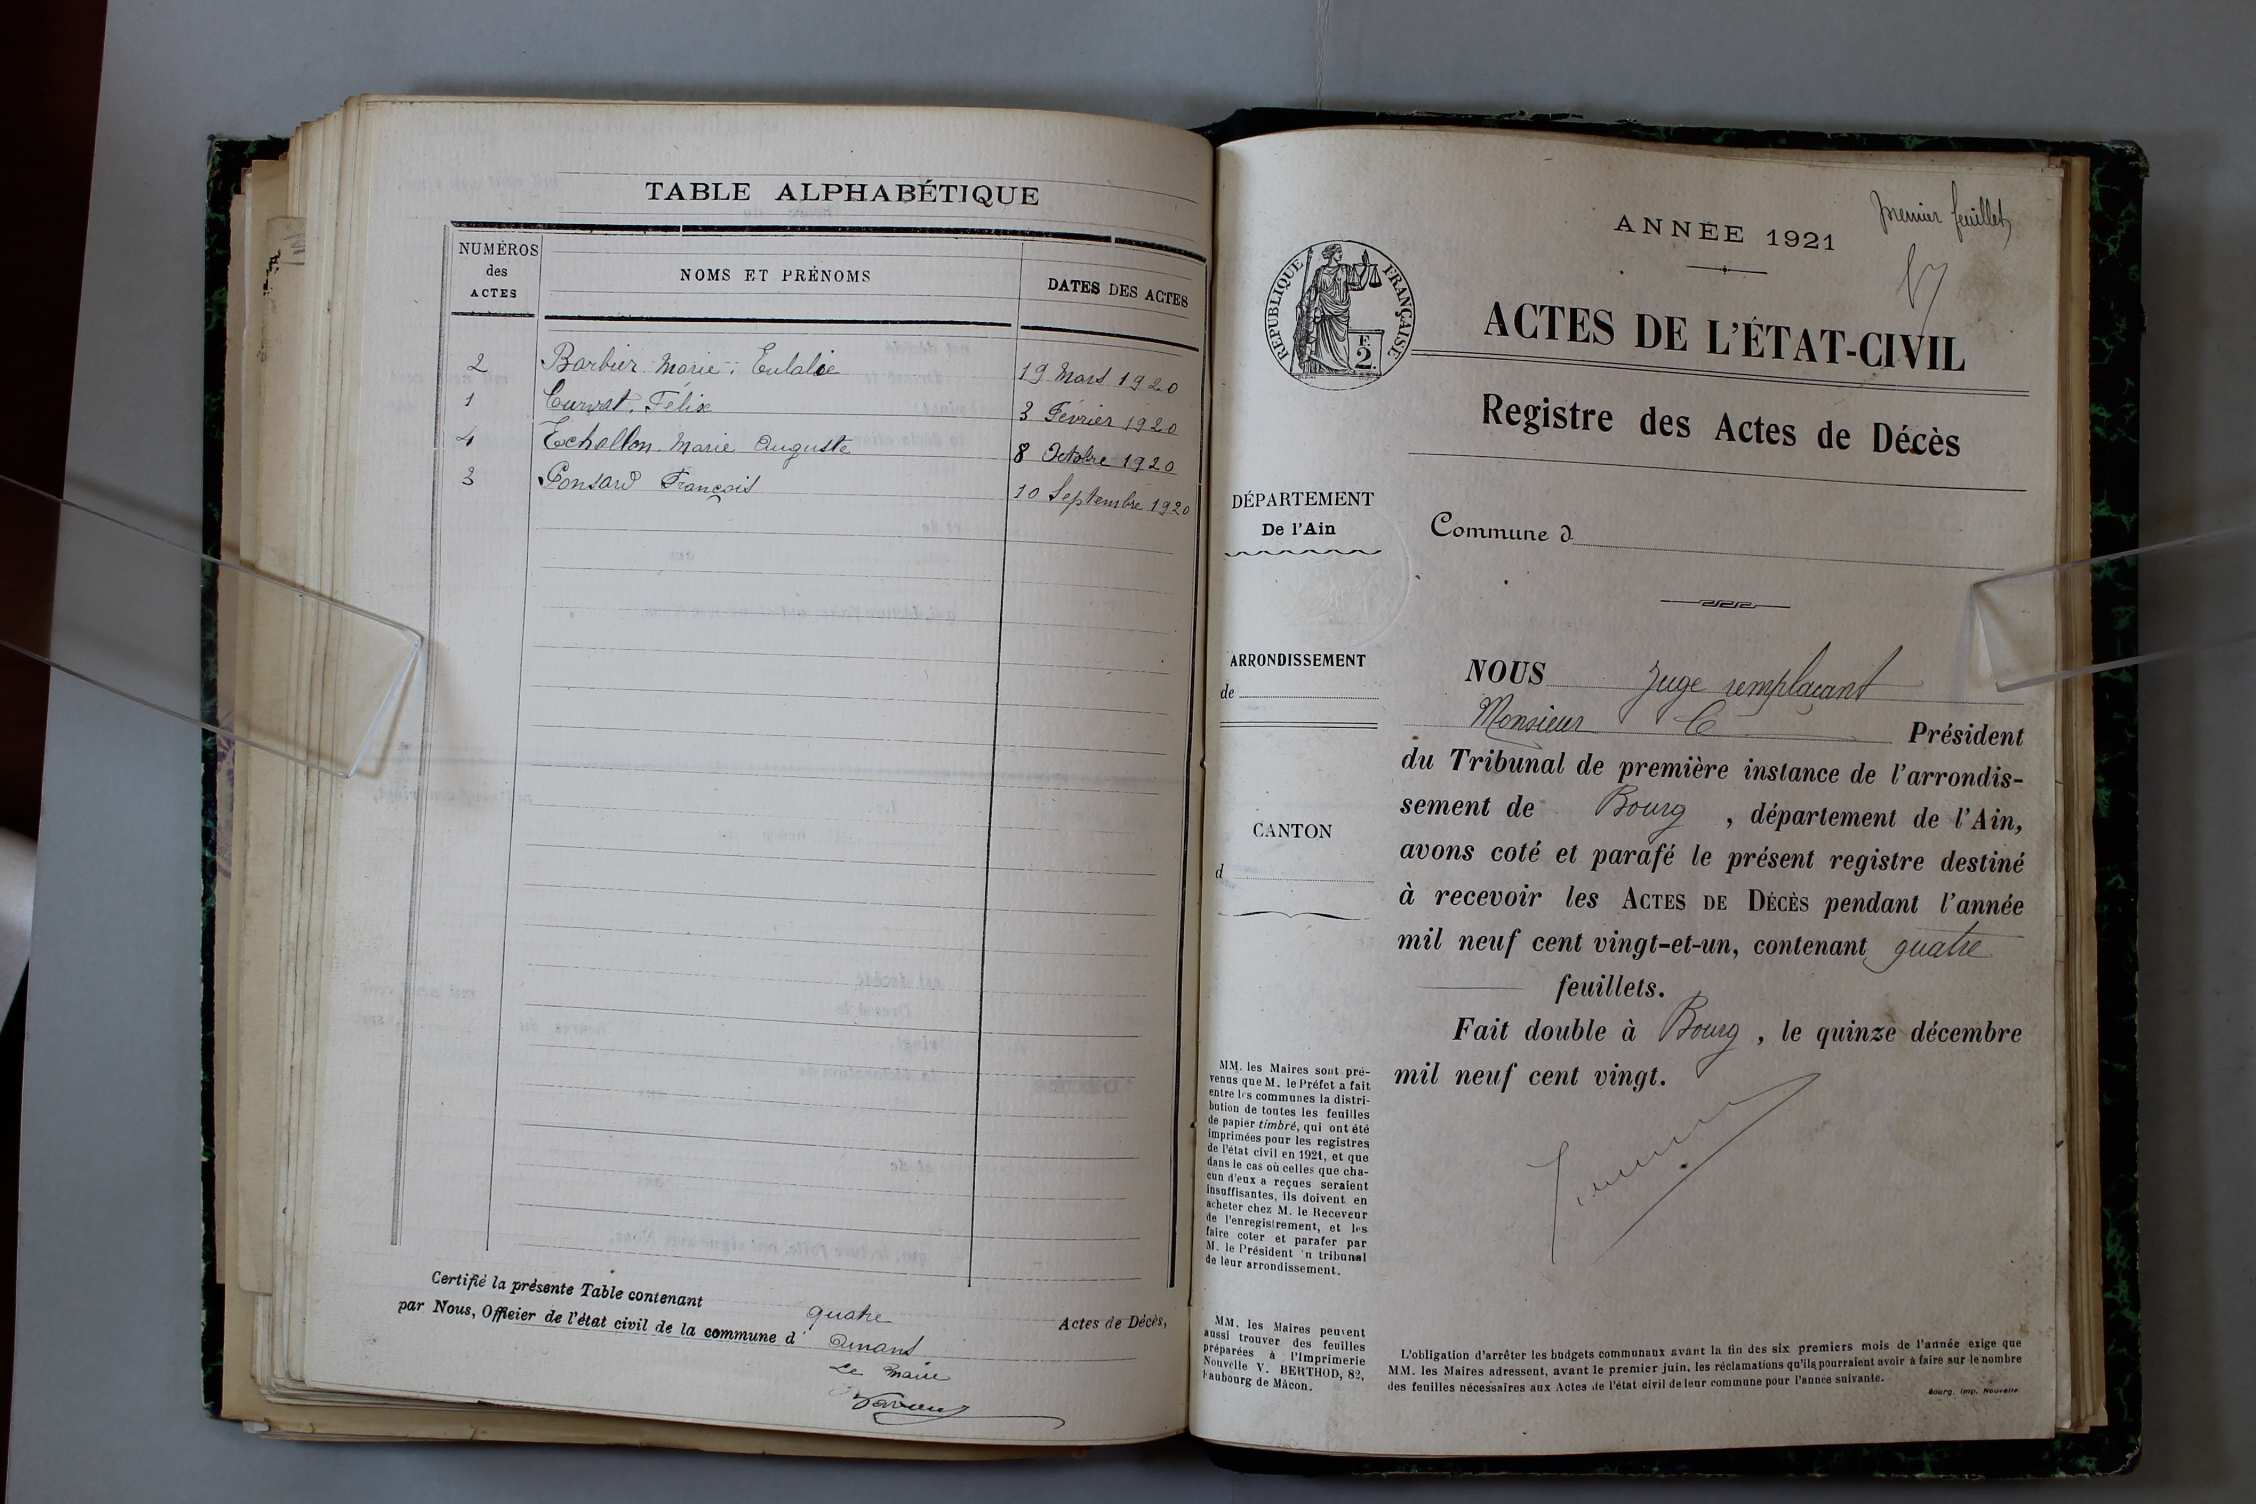 TABLE ALPHABÉTIQUE
NUMÉROS des ACTES
NOMS ET PRÉNOMS
DATES DES ACTES
2 Barbier Marie-Eulalie 19 Mars 1920
1 Curvat Félix 3 Février 1920
4 Echallon Marie Auguste 8 Octobre 1920
3 Ponsard François 10 Septembre 1920
Certifié la présente Table contenant quatre Actes de Décès,
par Nous, Officier de l'état civil de la commune d'
Le Maire
premier feuillet
ANNÉE 1921
RÉPUBLIQUE FRANÇAISE
F.
2.
ACTES DE L'ÉTAT-CIVIL
Registre des Actes de Décès
DÉPARTEMENT
De l'Ain
Commune d
ARRONDISSEMENT
de
CANTON
d
NOUS Juge remplaçant
Monsieur le Président
du Tribunal de première instance de l'arrondis-
sement de Bourg, département de l'Ain,
avons coté et parafé le présent registre destiné
à recevoir les ACTES DE DÉCÈS pendant l'année
mil neuf cent vingt-et-un, contenant quatre
feuillets.
Fait double à Bourg, le quinze décembre
mil neuf cent vingt.
MM. les Maires sont pré-
venus que M. le Préfet a fait
entre les communes la distri-
bution de toutes les feuilles
de papier timbré, qui ont été
imprimées pour les registres
de l'état civil en 1921, et que
dans le cas où celles que cha-
cun d'eux a reçues seraient
insuffisantes, ils doivent en
acheter chez M. le Receveur
de l'enregistrement, et les
faire coter et parafer par
M. le Président 'n tribunal
de leur arrondissement.
MM. les Maires peuvent
aussi trouver des feuilles
préparées à l'Imprimerie
Nouvelle V. BERTHOD, 82,
Faubourg de Mâcon.
L'obligation d'arrêter les budgets communaux avant la fin des six premiers mois de l'année exige que
MM. les Maires adressent, avant le premier juin, les réclamations qu'ils pourraient avoir à faire sur le nombre
des feuilles nécessaires aux Actes de l'état civil de leur commune pour l'année suivante.
Bourg, Imp. Nouvelle